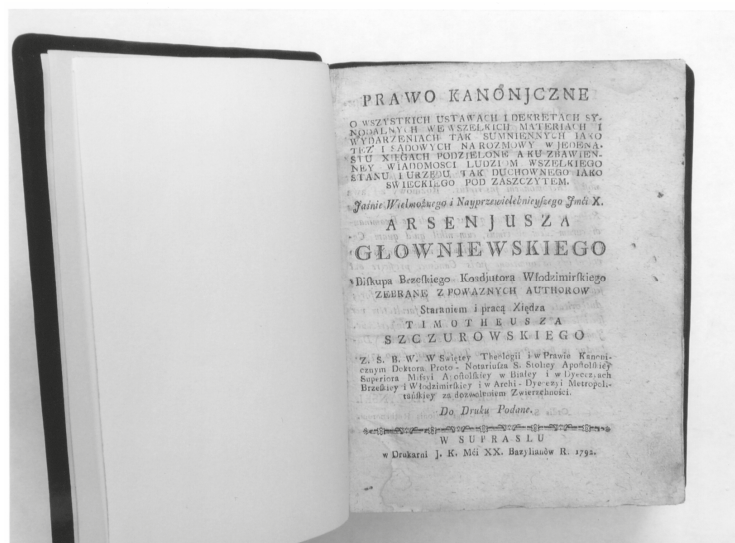 PRAWO KANONJCZNE
O WSZYSTKICH USTAWACH I DEKRETACH SY-
NODALNYCH WE WSZELKICH MATERIACH I
WYDARZENIACH TAK SUMNIENNYCH IAKO
TEZ I SĄDOWYCH NA ROZMOWY W JEDENA-
STU XIĘGACH PODZIELONE A KU ZBAWIEN-
NEY WIADOMOSCI LUDZIOM WSZELKIEGO
STANU I URZĘDU TAK DUCHOWNEGO IAKO
SWIECKIEGO POD ZASZCZYTEM.
Jaśnie Wielmożnego i Nayprzewielebnieyſzego Jmći X.
ARSENJUSZA
GŁOWNIEWSKIEGO
Biskupa Brzeſkiego Koadjutora Włodzimirſkiego
ZEBRANE Z POWAZNYCH AUTHOROW
Staraniem i pracą Xiędza
TIMOTHEUSZA
SZCZUROWSKIEGO
Z. S. B. W. W Swiętey Theologii i w Prawie Kanoni-
cznym Doktora Proto-Notariuſza S. Stolicy Apoſtolſkiey
Superiora Miſſyi Apoſtolſkiey w Białey i w Dyecezyach
Brzeſkiey i Włodzimirſkiey i w Archi-Dyecezyi Metropoli-
tańſkiey za dozwoleniem Zwierzchności.
Do Druku Podane.
W SUPRASLU
w Drukarni J. K. Mći XX. Bazylianów R. 1792.